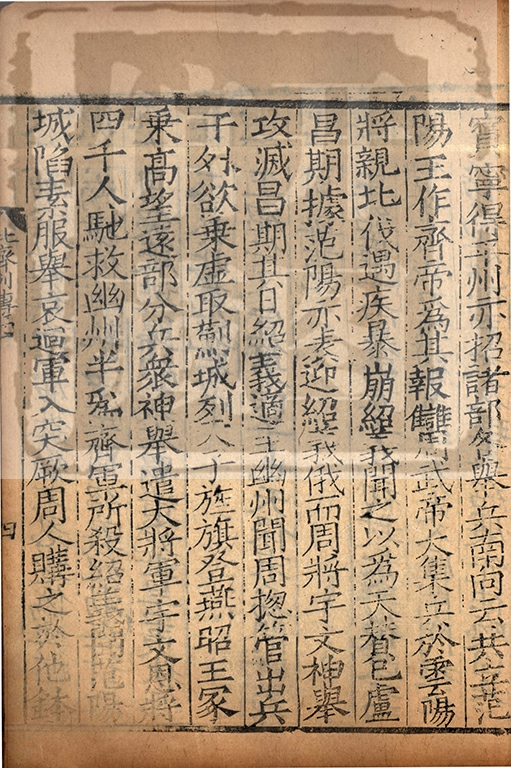 寳寧得平州亦招諸部各舉兵南向云共立范
陽王作齊帝爲其報讎周武帝大集兵於雲陽
將親北伐遇疾暴崩紹義聞之以為天賛已盧
昌期據范陽亦表迎紹義俄而周將宇文神舉
攻滅昌期其日紹義適至幽州聞周揔管出兵
于外欲乗虛取薊城列天子旌旗登燕昭王冢
乗髙望遠部分兵衆神舉遣大將軍宇文恩將
四千人馳救幽州半爲齊軍所殺紹義聞范陽
城陷素服舉哀迴軍入突厥周人購之於他鉢
北齊列傳四
四